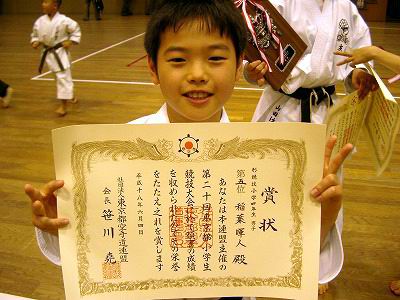 賞状
形競技小学四年生男子
第五位 稲葉暉人殿
あなたは本連盟主催の
第二十回東京都小学生
競技大会に於て頭書の成績
を収められました その栄誉
をたたえ之れを賞します
平成十八年六月四日
社団法人東京都空手道連盟
会長 笹川堯